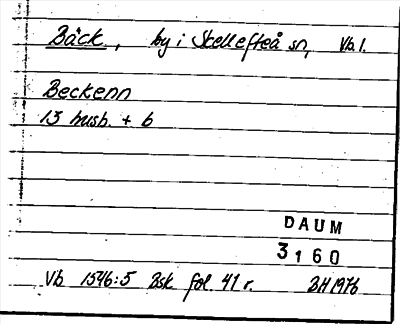 Bäck, by i Skellefteå sn, Vb.l.
Beckenn
13 hush. + 6
DAUM
3160
Vb 1546:5 Bsk fol. 41 r. BH 1976